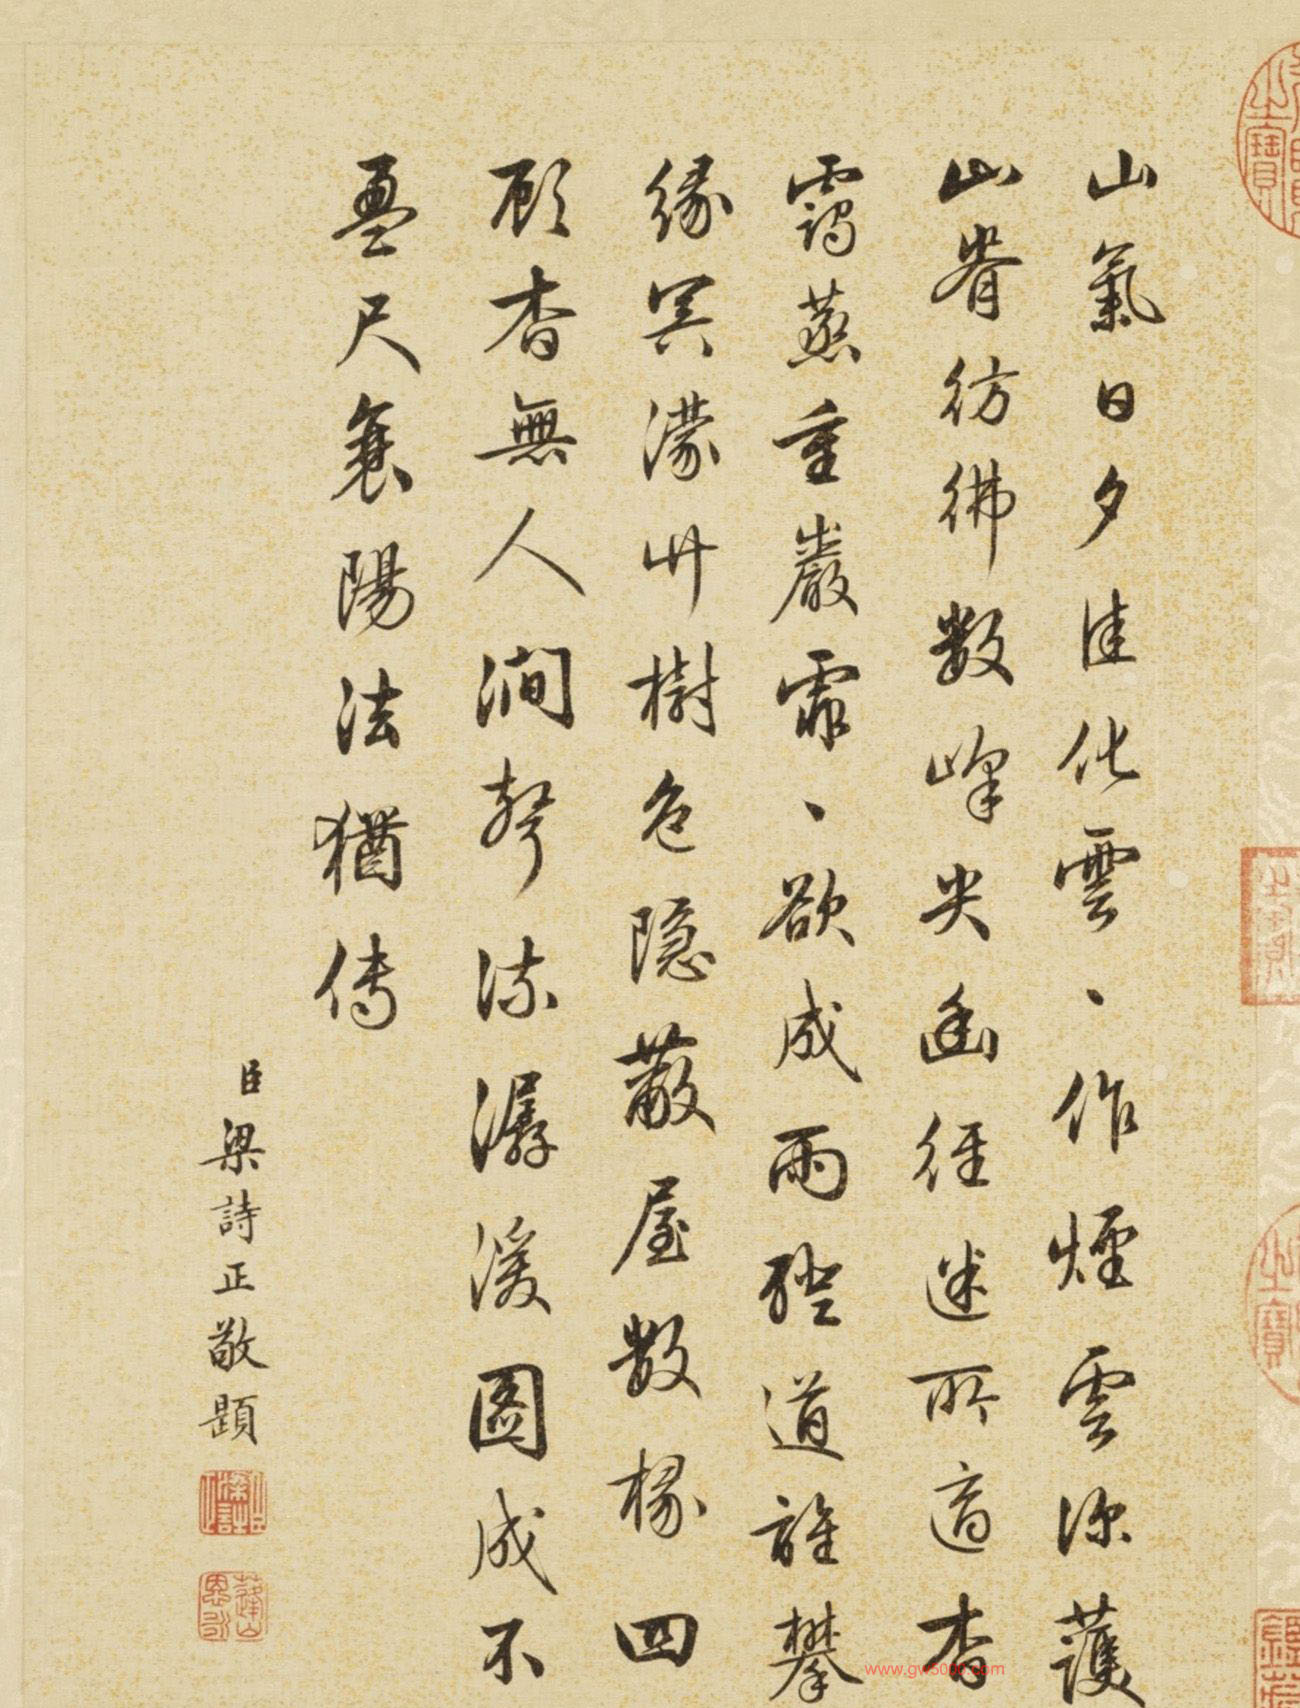 山氣日夕佳化雲丶作煙雲深護
山脊彷彿數峰尖幽徑迷所適杳
靄蒸重巖霏丶欲成雨磴道誰攀
緣冥濛竹樹色隱蔽屋數椽四
顧杳無人澗聲流潺湲圖成不
盈尺襄陽法猶傳
臣梁詩正敬題
www.gw5000.com